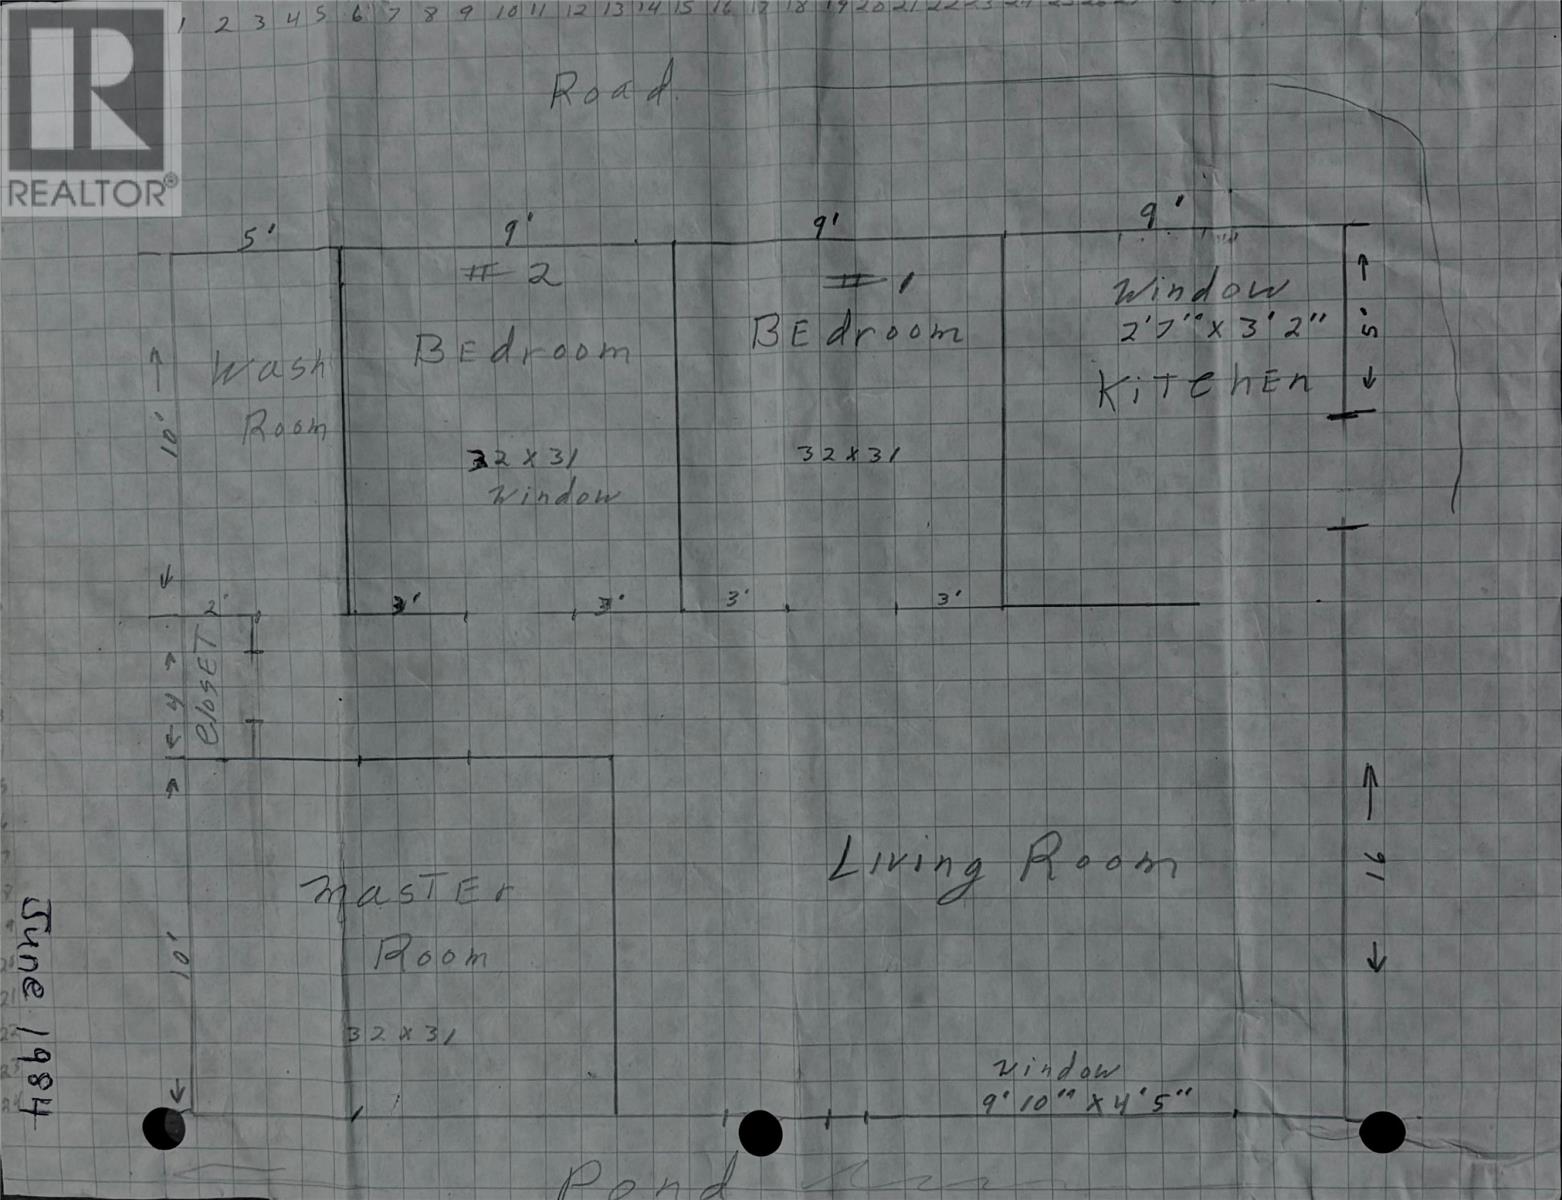 1 2 3 4 5 6 7 8 9 10 11 12 13 14 15 16 17 18 19 20 21 22 23 24 25 26 27
R
REALTOR®
Road
5' 9' 9' 9'
# 2 # 1
Window
2'7" x 3'2"
BEdroom BEdroom
Wash
Room
KiTchEn
5'
10'
32 x 31
Window
32 x 31
2' 3' 3' 3' 3'
4
ClosET
Living Room
16
MasTEr
Room
10'
32 x 31
June 1984
Window
9'10" x 4'5"
Pond